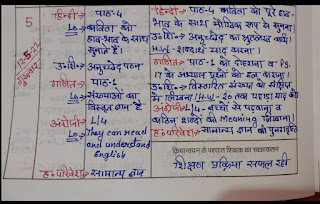 5
12-5-22
गुरुवार
हिन्दी → पाठ-4
L.o → कविता को
हाव-भाव के साथ
सुनाते हैं।
उ.शि → अनुच्छेद पठन
गणित → पाठ-1
L.o → संख्याओं का
विस्तृत ज्ञान है
अंग्रेजी → L-4
L.o → They can read
and understand
English
ह. परिवेश → सामान्य ज्ञान
हिन्दी → पाठ-4 कविता को पूरे हाव-
भाव के साथ मौखिक रूप से सुनना।
उ.शि → अनुच्छेद का
H.W - शब्दार्थ याद करना।
गणित → पाठ-1 को दोहराना व Pg.
17 के अभ्यास प्रश्नों को हल कराना।
उ.शि → विस्तारित संख्या को संक्षिप्त
में लिखना / H.W - 20 तक पहाड़ा याद करो
अंग्रेजी L4 → बच्चों से पढ़वाना व
कठिन शब्दों के Meaning लिखना।
ह. परिवेश → सामान्य ज्ञान की पुनरावृत्ति
क्रियान्वयन के पश्चात शिक्षक का स्वआकलन
शिक्षण प्रक्रिया सफल रही